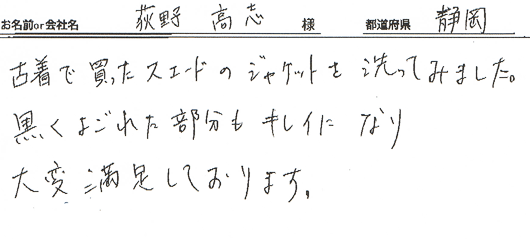 お名前or会社名 荻野 高志 様 都道府県 静岡
古着で買ったスエードのジャケットを洗ってみました。
黒くよごれた部分もキレイになり
大変満足しております。